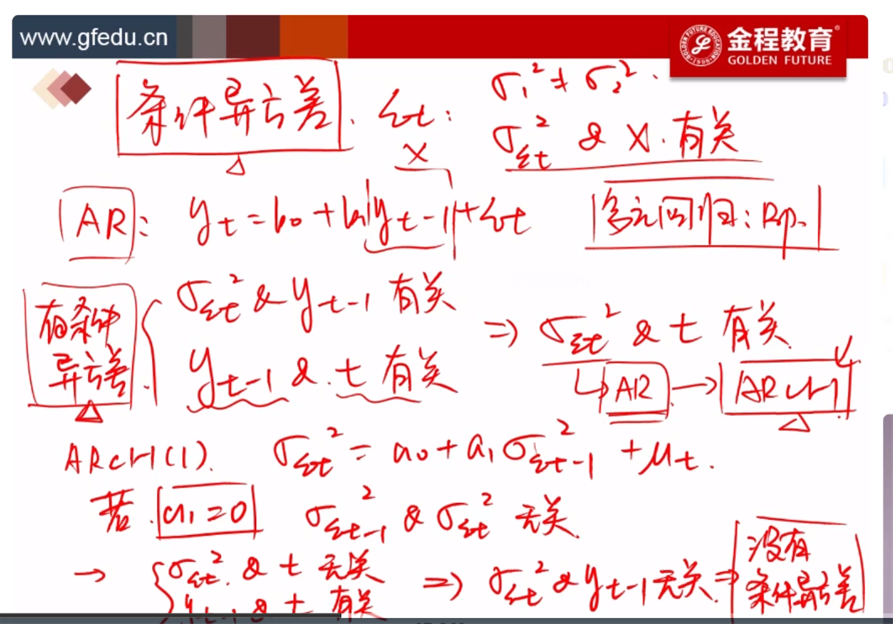 www.gfedu.cn
金程教育®
GOLDEN FUTURE
条件异方差. εt: σ₁² ≠ σ₂².
σεt² & X. 有关
X
AR: yt = b0 + b1 yt-1 + εt 多元回归: Bp.
有条件异方差 { σεt² & yt-1 有关
yt-1 & t 有关
⇒ σεt² & t 有关
↳ AR → ARCH
ARCH(1). σεt² = a0 + a1 σεt-1² + μt.
若 a1 = 0 σεt-1² & σεt² 无关
→ { σεt² & t 无关
yt-1 & t 有关
⇒ σεt² & yt-1 无关 ⇒ 没有条件异方差